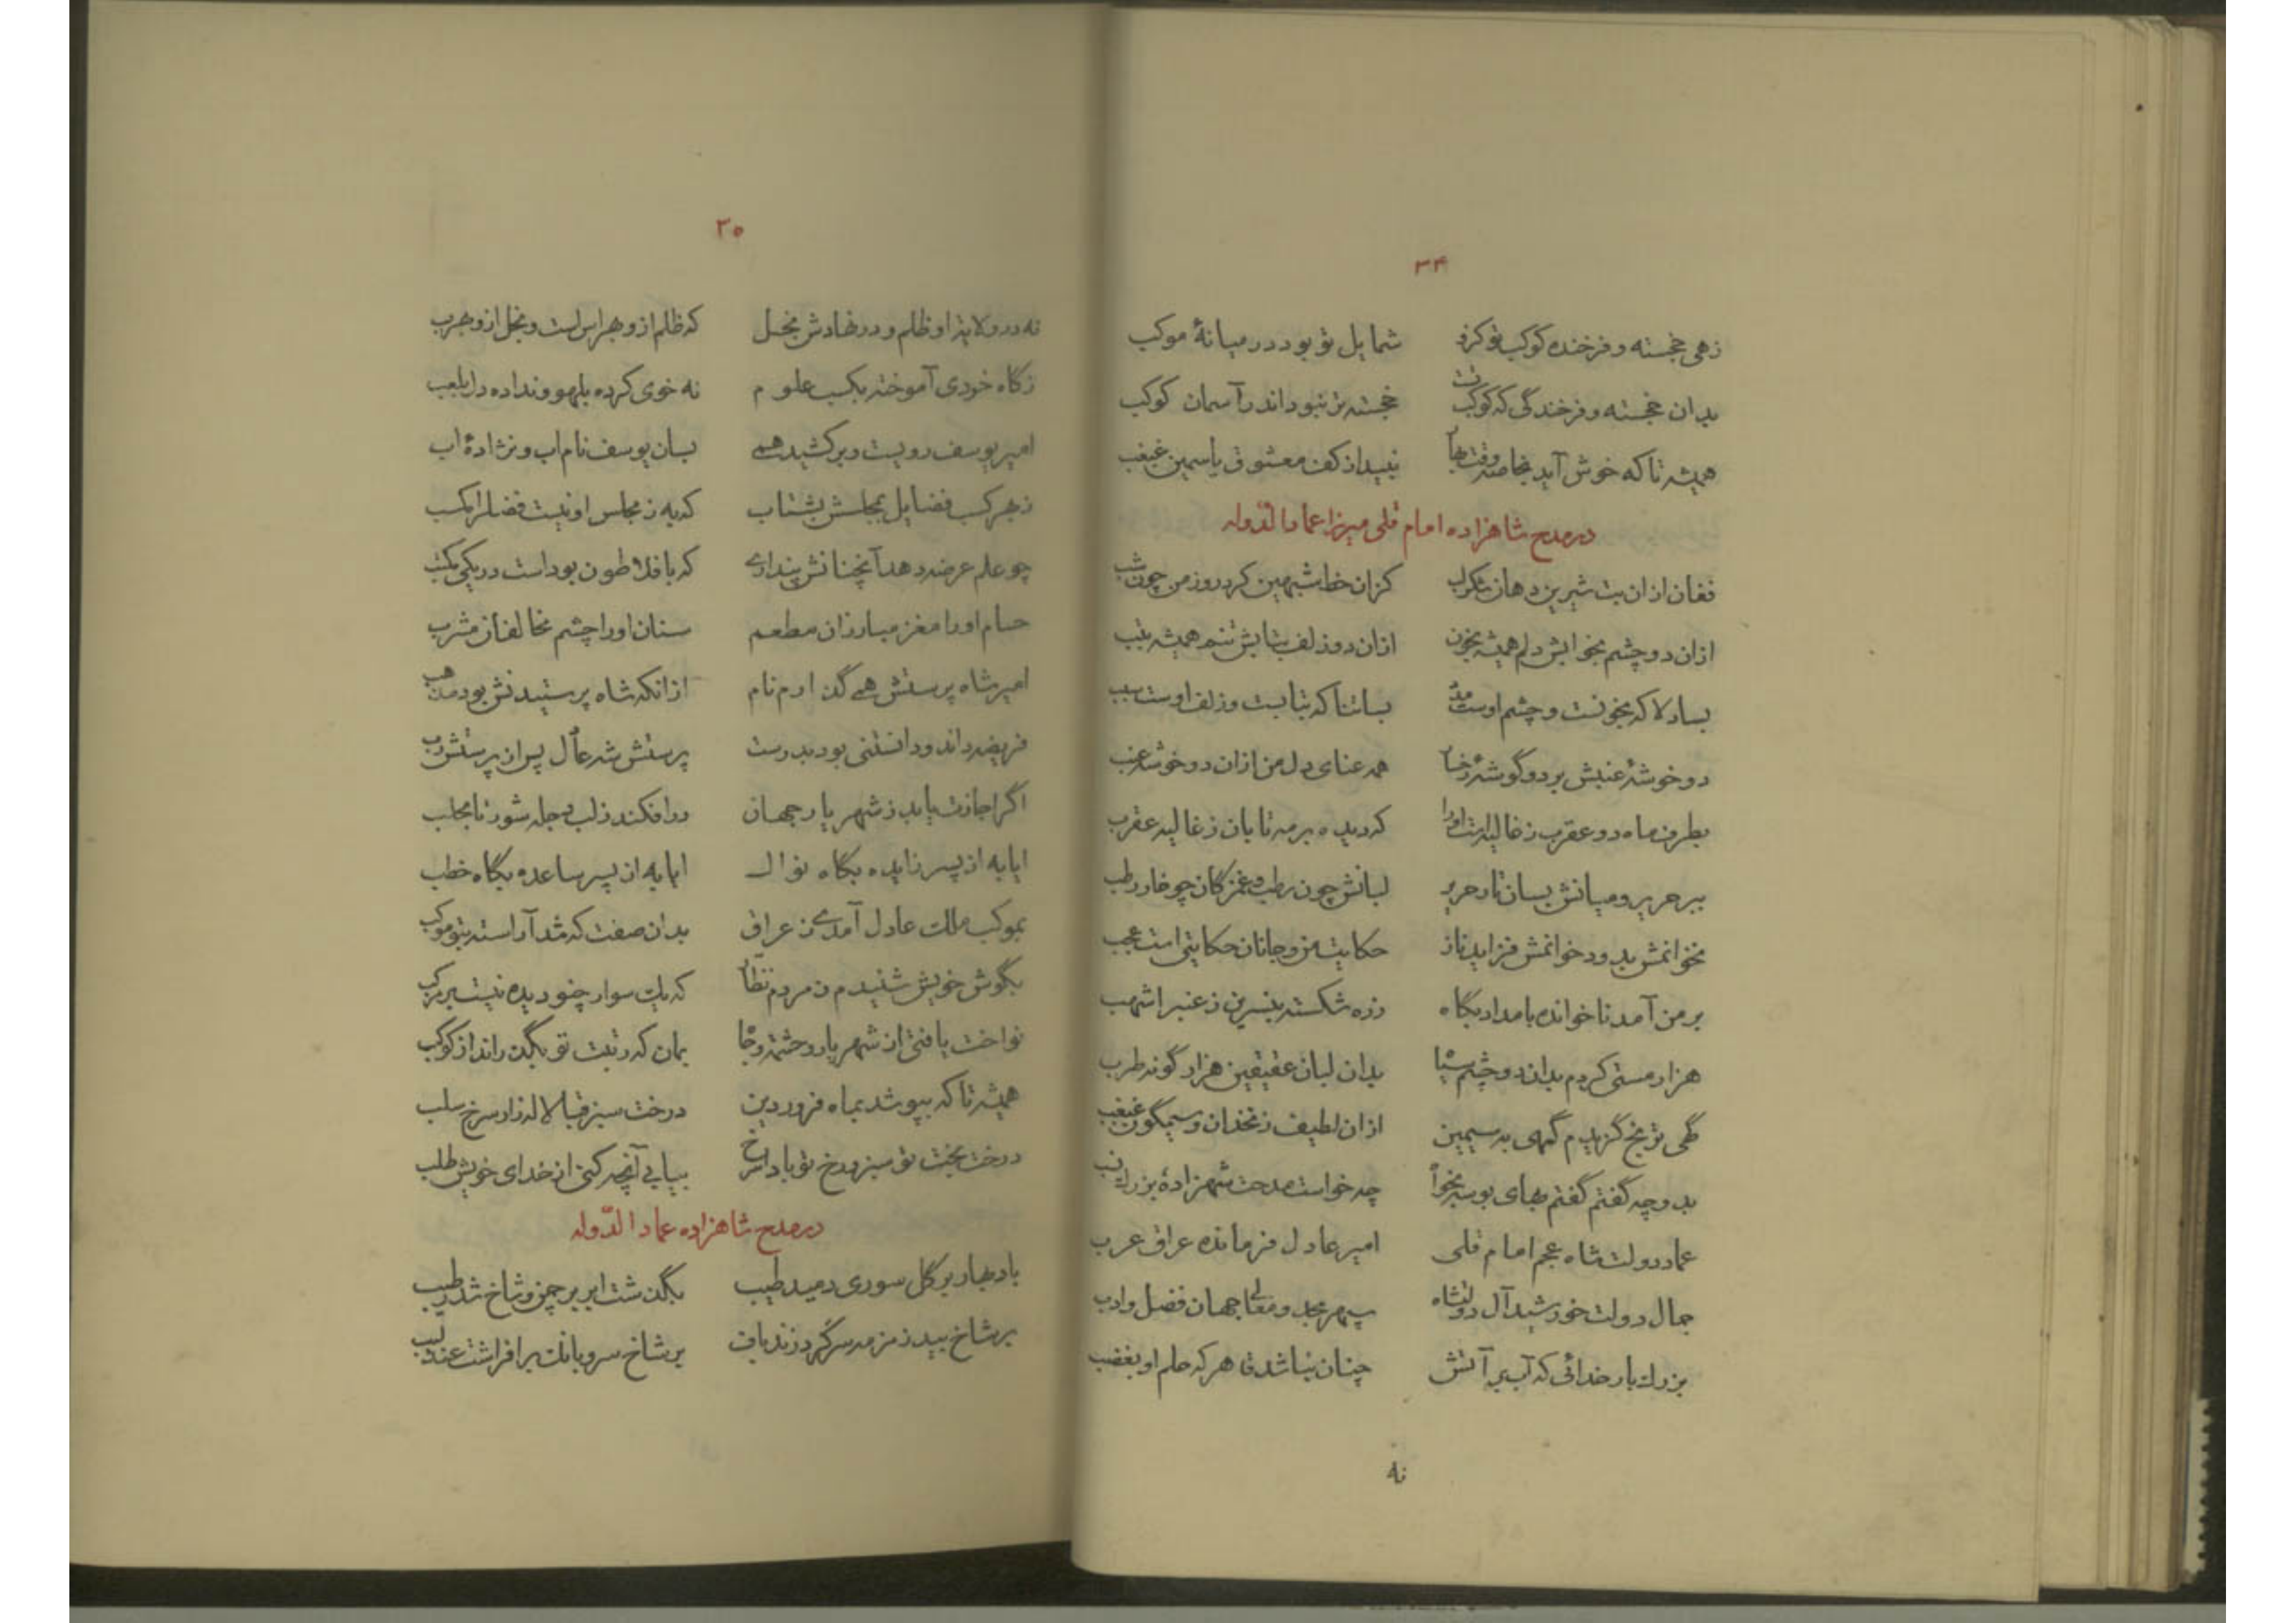 ۳۴
زهی خجسته و فرخنده کوکب تو کزو شمایل تو بود در میانهٔ موکب
بدان خجسته و فرخندگی که کوکب تست خجسته‌تر نبود اندر آسمان کوکب
همیشه تا که خوش آید نبید از کف معشوق یاسمین غبغب
در مدح شاهزاده امام قلی میرزا عماد الدوله
فغان از ان بت شیرین دهان شکر لب کزان خط شبهین کرد روز من چون شب
ازان دو چشم بخوابش دلم همیشه بخون ازان دو زلف بتابش تنم همیشه بتب
بسا دلا که بخونست و چشم اوست بسا تنا که بتابست و زلف اوست سبب
دو خوشهٔ عنبش بر دو گوشهٔ رخسار همه عنای دل من ازان دو خوشه عنب
بطرف ماه دو عقرب ز غالیه است او را که دیده بر مه تابان ز غالیه عقرب
ببر حریر و میانش بسان تار حریر لبانش چون رطب و غمزکان چو خار رطب
نخوانمش بد ور خوانمش فزاید ناز حکایت من و جانان حکایتی است عجب
بر من آمد ناخوانده بامداد بگاه زره شکسته بنسرین ز عنبر اشهب
هزار مستی کردم بدان دو چشم سیاه بدان لبان عقیقین هزار گونه طرب
گهی ترنج گزیدم گهی به سیمین ازان لطیف زنخدان و سیمگون غبغب
بدو چه گفتم گفتم بهای بوسه بخواه چه خواست مدحت شهزادهٔ بزرگ نسب
عماد دولت شاه عجم امام قلی امیر عادل فرمانده عراق عرب
جمال دولت خورشید آل دولتشاه سپهر مجد و معالی جهان فضل و ادب
بزرگ بار خدائی که آب بر آتش چنان نباشد قاهر که حلم او بغضب
نه
۳۵
نه در ولایت او ظلم و در نهادش بخل که ظلم ازو بهراس است و بخل ازو بهرب
ز گاه خردی آموخته بکسب علوم نه خوی کرده بلهو و نداده دل بلعب
امیر یوسف رویست و برکشید همی بسان یوسف نام اب و نژادهٔ اب
ز بهر کسب فضایل بمجلسش بشتاب که به ز مجلس او نیست فضل را مکسب
چو علم عرضه دهد آنچنانش پنداری که با فلاطون بوداست در یکی مکتب
حسام او را مغز مبارزان مطعم سنان او را چشم مخالفان مشرب
امیر شاه پرستش همی گذارم نام ازانکه شاه پرستیدنش بود مذهب
فریضه داند و دانستنی بود بدرست پرستش شه عادل پس از پرستش رب
اگر اجازت یابد ز شهریار جهان در افکند ز لب دجله شور تا بحلب
ایا به از پسر زایده بگاه نوال ایا به از پسر ساعده بگاه خطب
بموکب ملک عادل آمدی ز عراق بدان صفت که شد آراسته بتو موکب
بگوش خویش شنیدم ز مردم نظار که یک سوار چنو دیده نیست بر مرکب
نواخت یافتی از شهریار و حشمت و جاه بمان که رتبت تو بگذراند از کوکب
همیشه تا که بپوشد بماه فروردین درخت سبز قبا لاله‌زار سرخ سلب
درخت بخت تو سبز و رخ تو بادا سرخ بیابی آنچه کنی از خدای خویش طلب
در مدح شاهزاده عماد الدوله
باد بهار بر گل سوری دمید طیب بگذشت ابر بر چمن و شاخ شد رطیب
بر شاخ بید زمزمه سر کرد زندباف بر شاخ سرو بانگ برافراشت عندلیب